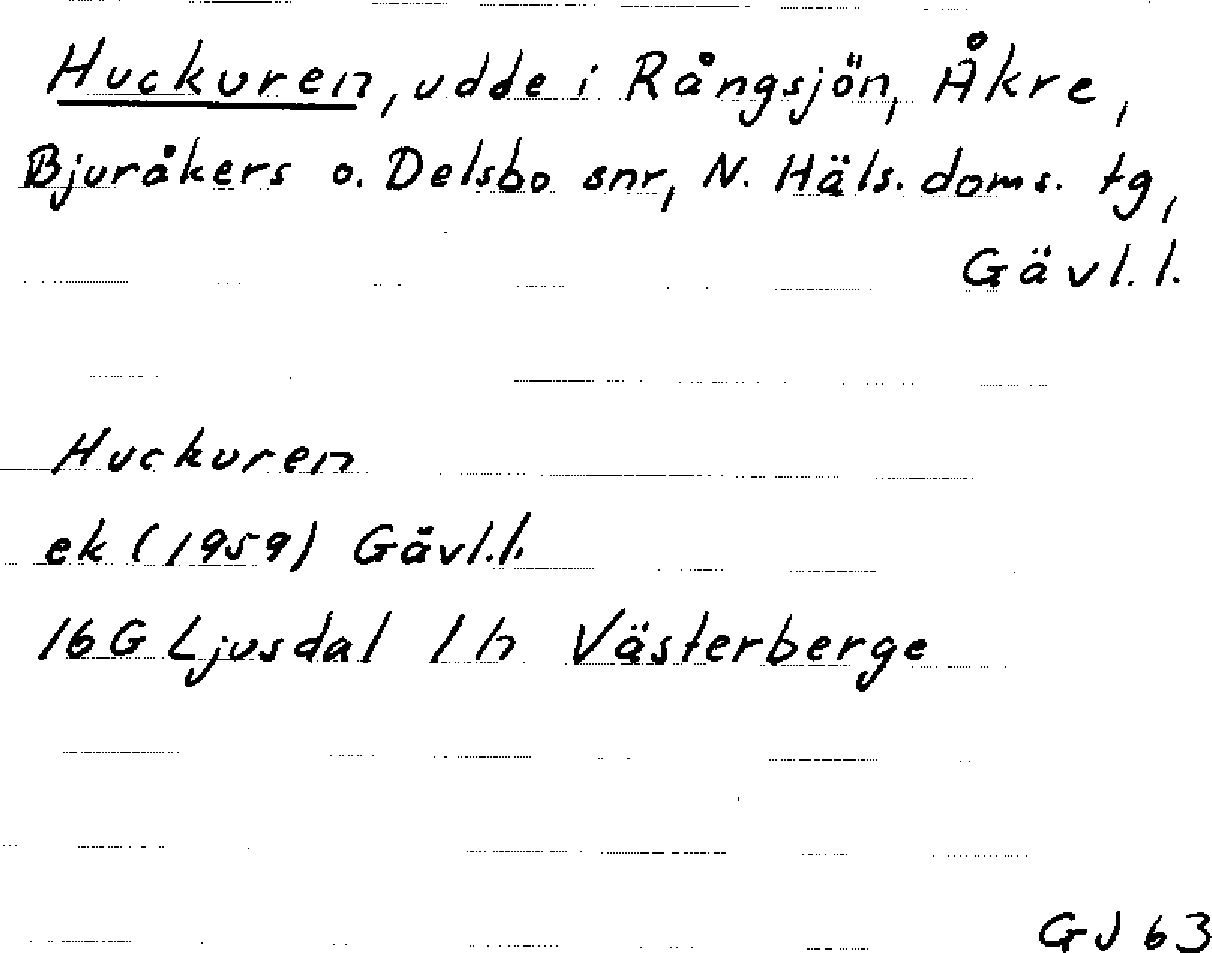 Huckuren, udde i Rångsjön, Åkre,
Bjuråkers o. Delsbo snr, N. Häls. doms. tg,
Gävl. l.
Huckuren
ek (1959) Gävl. l.
16G Ljusdal 1h Västerberge
GJ 63